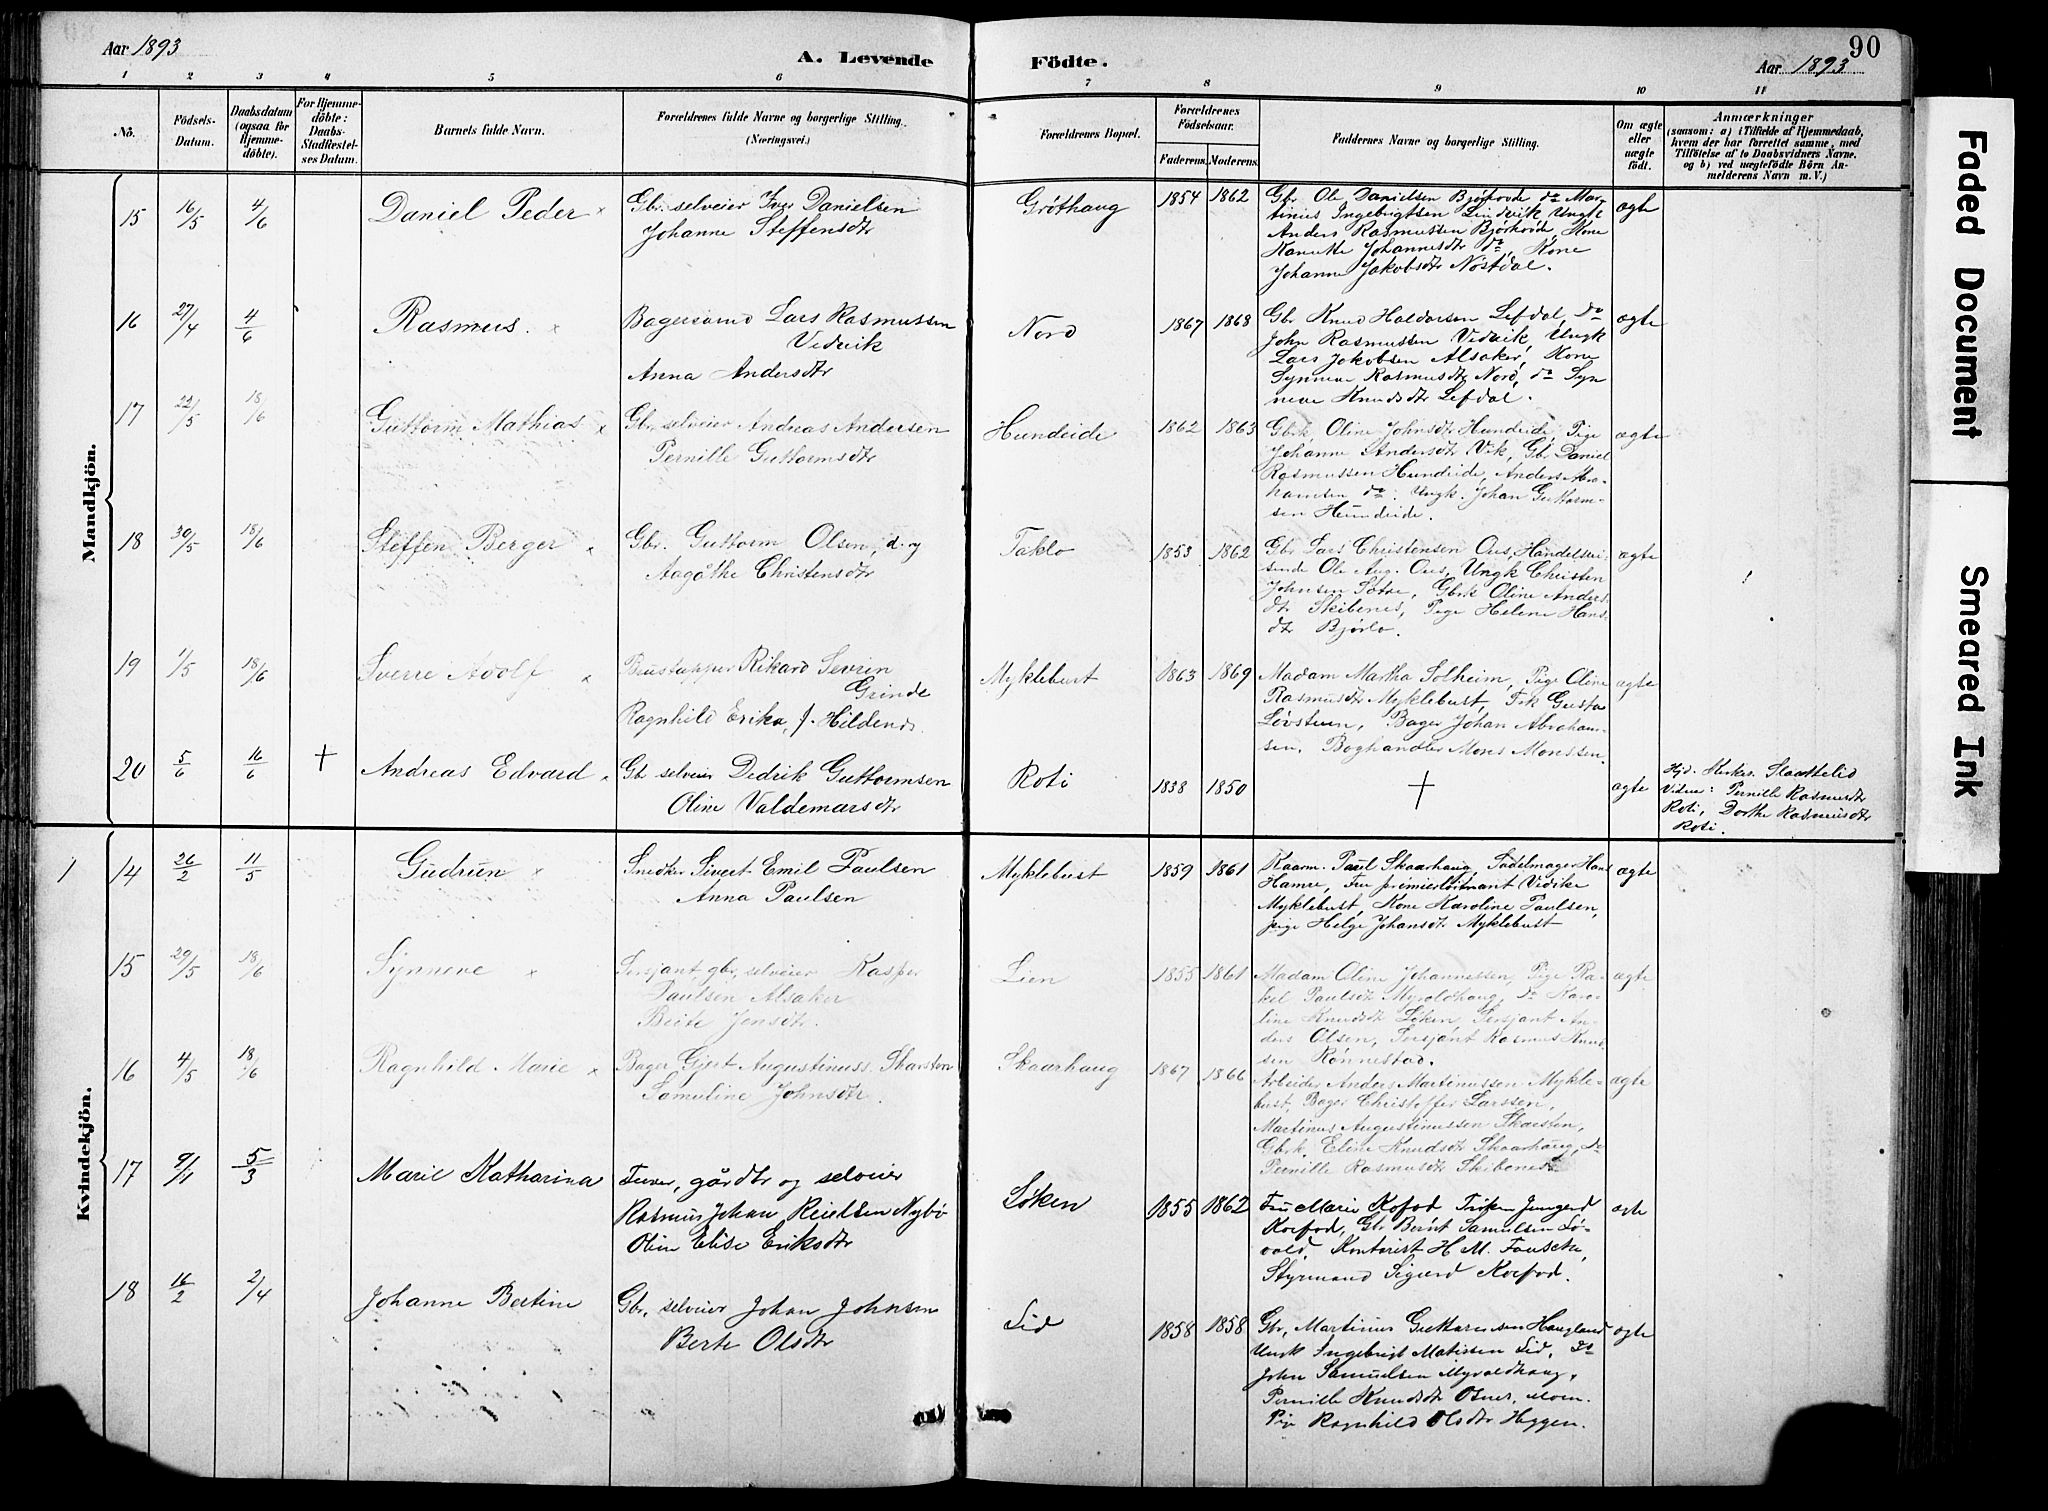 Aar 1893
A. Levende
Födte.
90
Aar 1893
1 2 3 4 5 6 7 8 9 10 11
No.
Födsels-
Datum.
Daabsdatum
(ogsaa for
Hjemme-
döbte).
For Hjemme-
döbte:
Daabs-
Stadfæstel-
ses Datum.
Barnets fulde Navn.
Forældrenes fulde Navne og borgerlige Stilling.
(Næringsvei.)
Forældrenes Bopæl.
Forældrenes
Födselsaar.
Faderens. Moderens.
Faddernes Navne og borgerlige Stilling.
Om ægte
eller
uægte
födt.
Anmærkninger
(saasom: a) i Tilfælde af Hjemmedaab,
hvem der har forrettet samme, med
Tilföielse af to Daabsvidners Navne,
og b) ved uægtefödte Börn An-
melderens Navn m. V.)
Mandkjön.
15 16/5 4/6 Daniel Peder x Gbr. selveier Iver Danielsen
Johanne Steffensdtr
Gröthaug 1854 1862 Gbr Ole Danielsen Björhovde do Mar-
tinus Ingebrigtsen Lindvik Ungk
Anders Rasmussen Björhovde, Kone
Johannesdtr do, Kone
Johanne Jakobsdtr Nöstdal.
ægte
16 27/4 4/6 Rasmus. x Bagersvend Lars Rasmussen
Vedvik
Anna Andersdtr
Nord 1867 1868 Gbr Knud Haldorsen Lefdal, do
John Rasmussen Vedvik, Ungk
Lars Jakobsen Alsaker, Kone
Synneve Rasmusdtr Nord, do Syn
neve Knudsdtr Lefdal.
ægte
17 22/5 18/6 Guttorm Mathias x Gbr. selveier Andreas Andersen
Pernille Guttormsdtr
Hundeide 1862 1863 Gbrk. Oline Johnsdtr Hundeide, Pige
Johanne Andersdtr Vik, Gbr Daniel
Rasmussen Hundeide, Anders Abra-
hamsen do. Ungk. Johan Guttorm-
sen Hundeide.
ægte
18 30/5 18/6 Steffen Berger x Gbr. Guttorm Olsen, d. y
Aagåthe Christensdtr
Taklo 1853 1862 Gbr Lars Christensen Ous, Handelsrei-
sende Ole Aug. Ous, Ungk Christen
Johnsen Sætre, Gbrk Oline Anders
dtr Skibenes, Pige Helene Hans
dtr Bjørlo.
ægte
19 1/5 18/6 Sverre Adolf x Brustapper Rikard Sevrin
Grinde
Ragnhild Erika, f. Hildend.
Myklebust 1863 1869 Madam Martha Solheim, Pige Oline
Rasmusdtr Myklebust, Frk Gusta
Løvstuen, Bager Johan Abraham-
sen, Boghandler Mons Monssen.
ægte
20 5/6 16/6 + Andreas Edvard x Gb selveier Dedrik Guttormsen
Oline Valdemarsdtr
Roti 1838 1850 + ægte
Hjd. Staattelid
Vidner: Pernille Rasmusdtr
Roti, Dorthe Rasmusdtr
Roti.
Kvindekjön.
1 14 26/2 11/5 Gudrun x Snedker Sivert Emil Paulsen
Anna Paulsen
Myklebust 1859 1861 Paul Skaarhaug, Sadelmager Hans
Hamre, Fru premierløitnant Vidike
Myklebust, Kone Karoline Paulsen,
pige Helge Johansdtr Myklebust
ægte
15 29/5 18/6 Synneve x Sersjant, gbr, selveier Kasper
Paulsen Alsaker
Berte Jensdtr.
Lien 1855 1861 Madam Oline Johannessen, Pige Ra-
kel Paulsdtr Myroldhaug, do Karo-
line Knudsdtr Løken, Sersjant An-
ders Olsen, Sersjant Rasmus Knud-
sen Rønnestad.
ægte
16 4/5 18/6 Ragnhild Marie x Bager Gjert Augustinuss. Skarsten
Samuline Johnsdtr.
Skaarhaug 1867 1866 Arbeider Anders Martinussen Mykle-
bust, Bager Christoffer Larssen,
Martinus Augustinussen Skarsten,
Gbrk. Eline Knudsdtr Skaarhaug, do
Pernille Rasmusdtr Skibenes
ægte
17 9/1 5/3 Marie Katharina gårdbr og selveier
Rasmus Johan Reidtsen Nybø
Olin Elise Eriksdtr
Løken 1855 1862 Fru Marie Kofod Frøken Jungerd
Koefod, Gbr Bernt Samulsen Lø-
vold, Kontorist H. M. Fausche,
Styrmand Sigurd Koefod.
ægte
18 16/2 2/4 Johanne Bertine Gbr, selveier Johan Johnsen
Berte Olsdtr
Lid 1858 1858 Gbr, Martinus Guttormsen Haugland
Ungk Ingebrigt Matissen Lid, do
John Samuelsen Myroldhaug,
Pernille Knudsdtr
Pige Ragnhild Olsdtr Heggen.
ægte
Faded Document
Smeared Ink